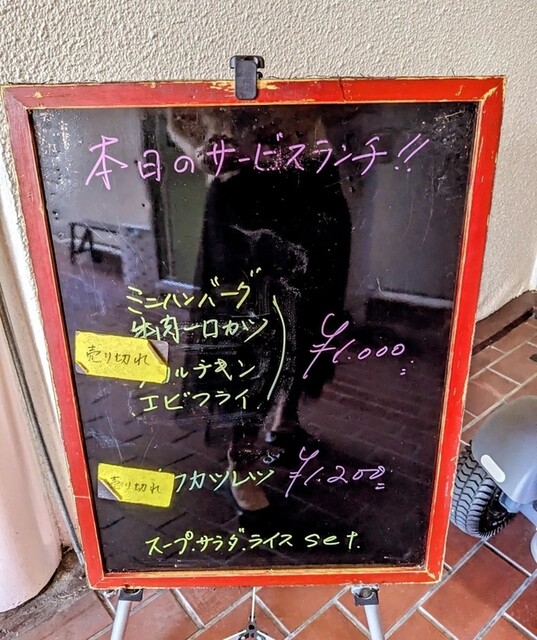 本日のサービスランチ!!
ミニハンバーグ
牛肉一口カツ
売り切れ
ルチキン
¥1.000
エビフライ
売り切れ
フカツレツ ¥1.200
スープ.サラダ.ライス set.